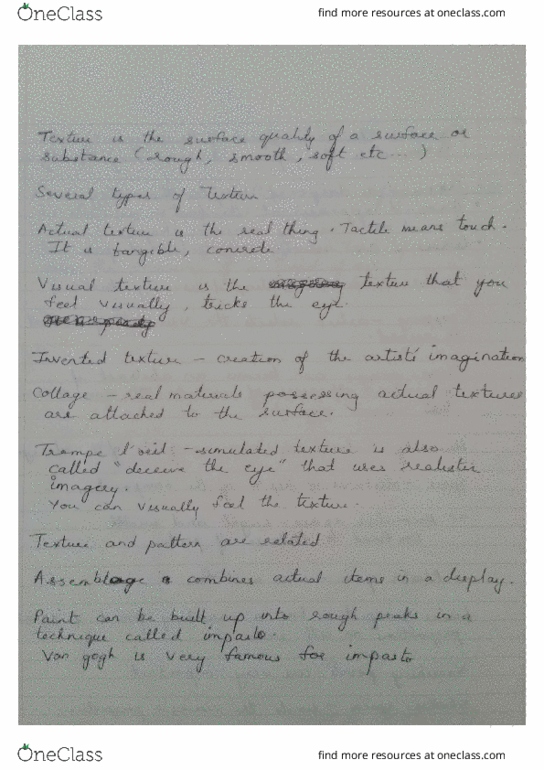 OneClass
find more resources at oneclass.com
Texture is the surface quality of a surface or
substance (rough, smooth, soft etc...)
Several types of Texture
Actual texture is the real thing. Tactile means touch.
It is tangible, concrete
Visual texture is the texture that you
feel visually, tricks the eye.
Invented texture - creation of the artists' imagination
Collage - real materials possessing actual textures
are attached to the surface.
Trampe l'oeil - simulated texture is also
called "deceive the eye" that uses realistic
imagery.
You can visually feel the texture.
Texture and pattern are related
Assemblage combines actual items in a display.
Paint can be built up into rough peaks in a
technique called impasto.
Van gogh is very famous for impasto
OneClass
find more resources at oneclass.com